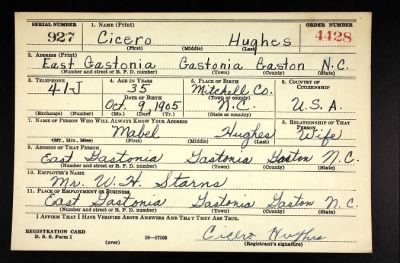 SERIAL NUMBER 1. NAME (Print) ORDER NUMBER
927 Cicero Hughes 4428
(First) (Middle) (Last)
2. ADDRESS (Print)
East Gastonia Gastonia Gaston N.C.
(Number and street or R. F. D. number) (Town) (County) (State)
3. TELEPHONE 4. AGE IN YEARS 5. PLACE OF BIRTH 6. COUNTRY OF CITIZENSHIP
41-J 35 Mitchell Co.
DATE OF BIRTH (Town or county)
Oct. 9, 1905 N.C. U.S.A.
(Exchange) (Number) (Mo.) (Day) (Yr.) (State or country)
7. NAME OF PERSON WHO WILL ALWAYS KNOW YOUR ADDRESS 8. RELATIONSHIP OF THAT PERSON
Mabel Hughes Wife
(Mr., Mrs., Miss) (First) (Middle) (Last)
9. ADDRESS OF THAT PERSON
East Gastonia Gastonia Gaston N.C.
(Number and street or R. F. D. number) (Town) (County) (State)
10. EMPLOYER'S NAME
Mr. W.H. Starns
11. PLACE OF EMPLOYMENT OR BUSINESS
East Gastonia Gastonia Gaston N.C.
(Number and street or R. F. D. number) (Town) (County) (State)
I AFFIRM THAT I HAVE VERIFIED ABOVE ANSWERS AND THAT THEY ARE TRUE.
REGISTRATION CARD
D. S. S. Form 1 (over) 16-17105 Cicero Hughes
(Registrant's signature)